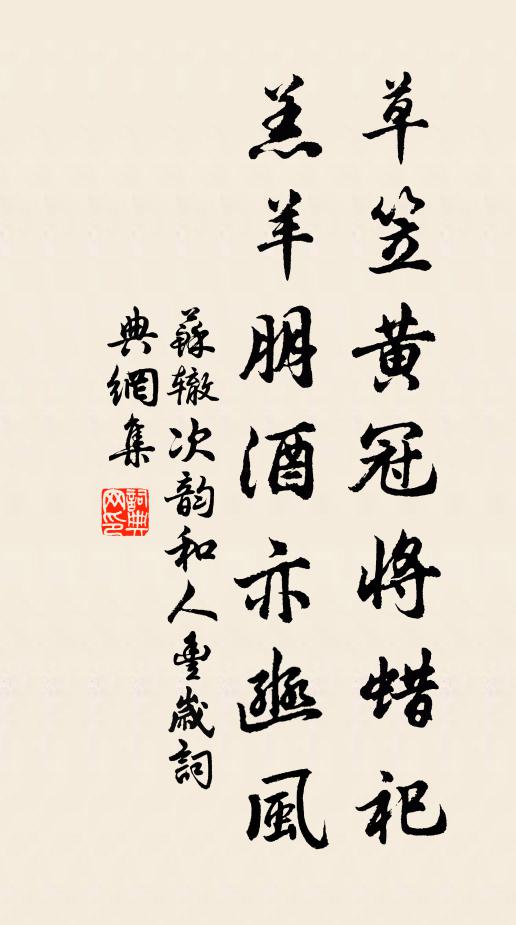 草笠黄冠將蜡祀
羔羊朋酒亦豳風
蘇辙次韵和人豐歲詞
典網集
詞典网印